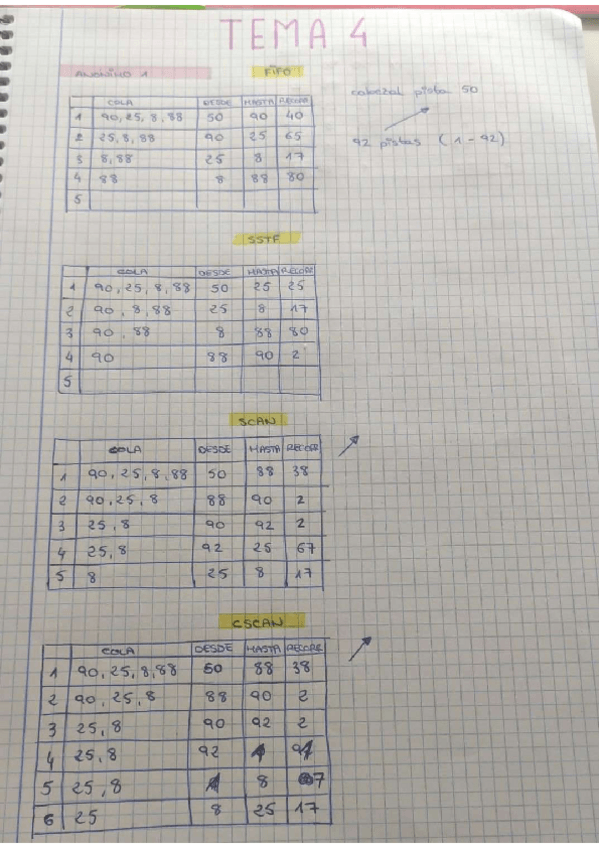 TEMA 4
ANÓNIMO 1
FIFO
cabezal pista 50
92 pistas (1-92)
COLA DESDE HASTA RECORR
1 90, 25, 8, 88 50 90 40
2 25, 8, 88 90 25 65
3 8, 88 25 8 17
4 88 8 88 80
5
SSTF
COLA DESDE HASTA RECORR
1 90, 25, 8, 88 50 25 25
2 90, 8, 88 25 8 17
3 90, 88 8 88 80
4 90 88 90 2
5
SCAN
COLA DESDE HASTA RECOR
1 90, 25, 8, 88 50 88 38
2 90, 25, 8 88 90 2
3 25, 8 90 92 2
4 25, 8 92 25 67
5 8 25 8 17
CSCAN
COLA DESDE HASTA RECORR
1 90, 25, 8, 88 50 88 38
2 90, 25, 8 88 90 2
3 25, 8 90 92 2
4 25, 8 92 1 91
5 25, 8 1 8 7
6 25 8 25 17